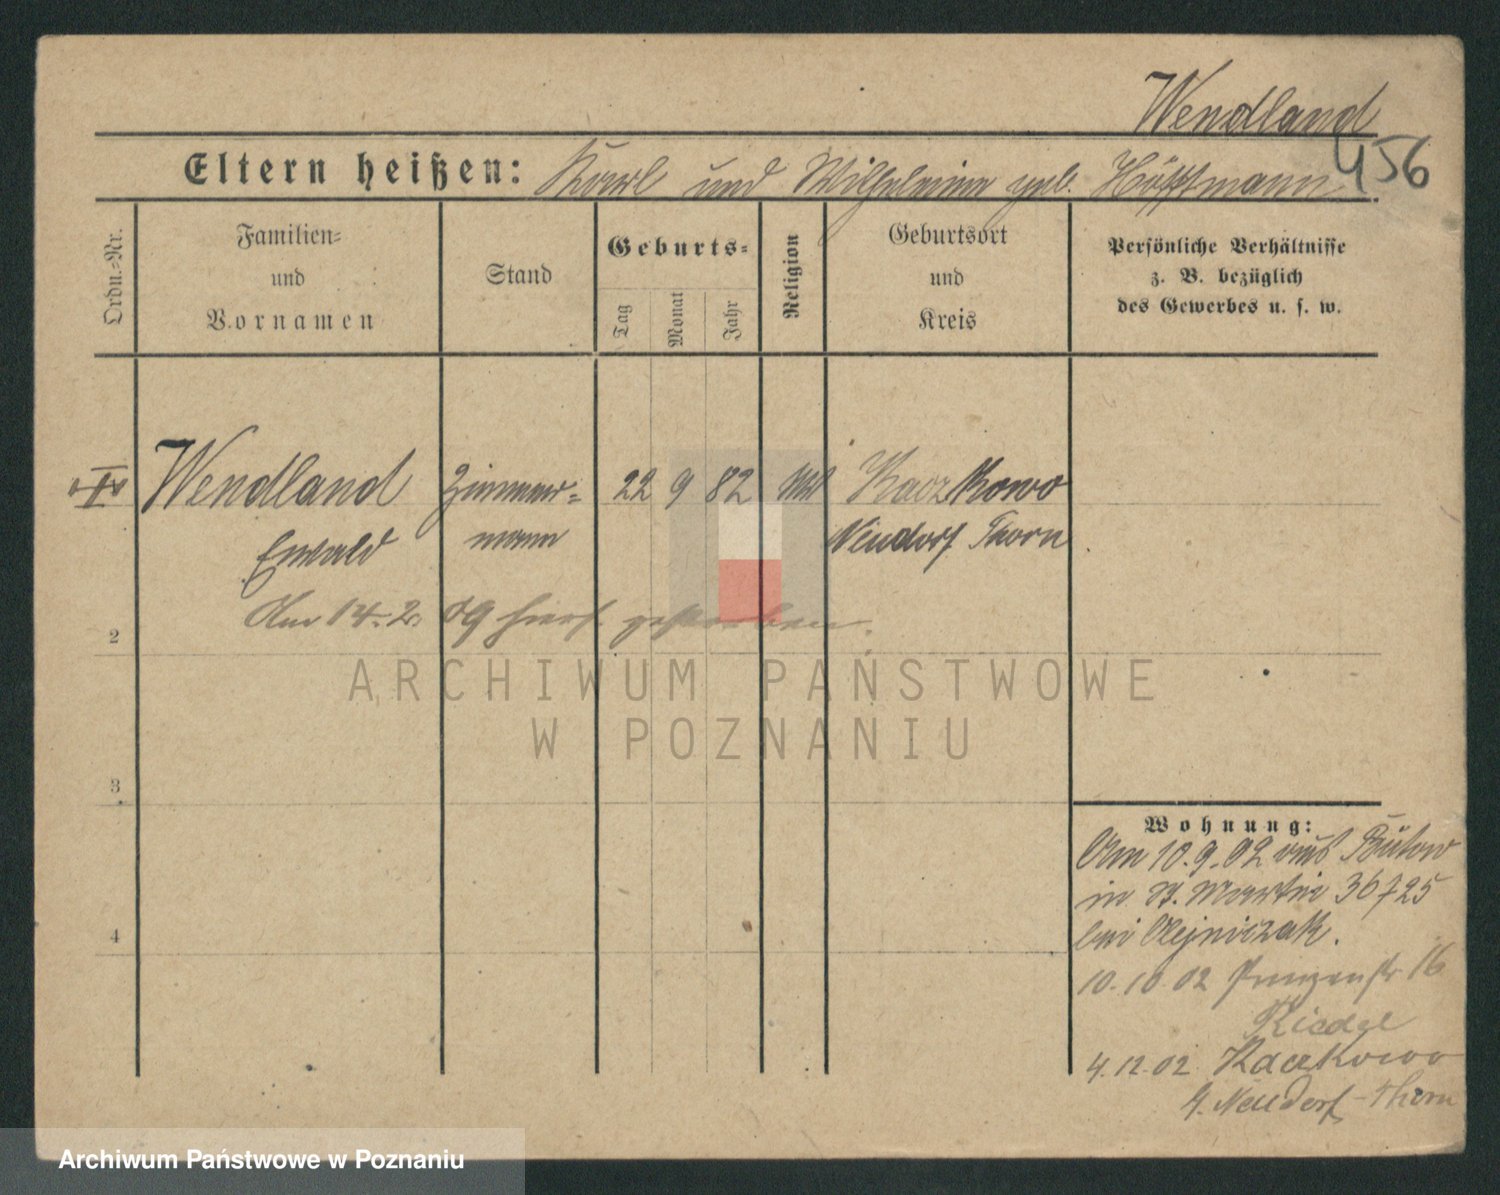 Wendland
456
Eltern heißen: Karl und Wilhelmine geb. Höffmann
Ordn.-Nr.
Familien-
und
Vornamen
Stand
Geburts-
Tag
Monat
Jahr
Religion
Geburtsort
und
Kreis
Persönliche Verhältnisse
z. B. bezüglich
des Gewerbes u. s. w.
Wendland Zimmer- 22 9 82 Kaczkowo
Ewald mann Neudorf Thorn
Am 14.2. 09 hiers. gestorben.
2
ARCHIWUM PAŃSTWOWE
W POZNANIU
3
4
Wohnung:
Am 10.9.02 aus Bütow
in St. Martin 36725
bei Olejniczak.
10.10.02 Prinzenstr 16
4.12.02 Kaczkowo
Neudorf-Thorn
Archiwum Państwowe w Poznaniu